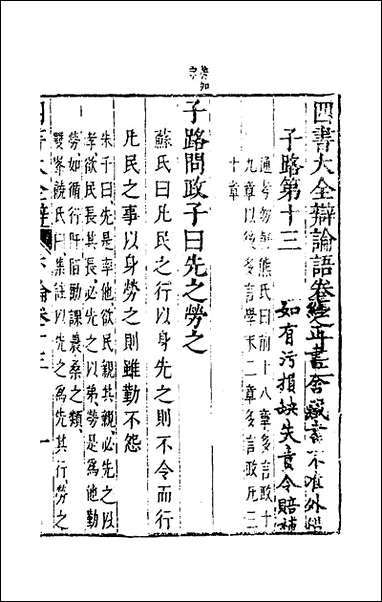 勞如字
四書大全辯論語卷經正書舍藏書不准外借
子路第十三
如有污損缺失責令賠補
通考勿軒熊氏曰前十八章多言政十
九章以後多言學末二章多言政凡三
十章
子路問政子曰先之勞之
蘇氏曰凡民之行以身先之則不令而行
凡民之事以身勞之則雖勤不怨
朱子曰先是率他欲民親其親必先之以
孝欲民長其長必先之以弟勞是爲他勤
勞如循行阡陌勸課農桑之類
雙峯饒氏曰集註以先之爲先其行勞之
四書大全辯 下論卷十三 一